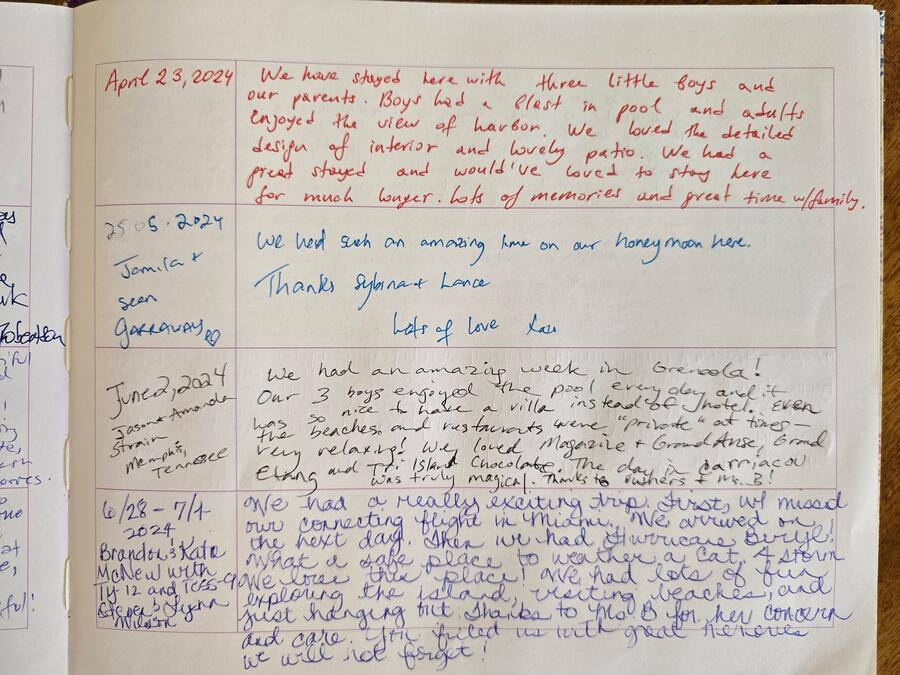 April 23, 2024
We have stayed here with three little boys and
our parents. Boys had a blast in pool and adults
enjoyed the view of harbor. We loved the detailed
design of interior and lovely patio. We had a
great stayed and would've loved to stay here
for much longer. Lots of memories and great time w/family.
25 05 . 2024
Jamila +
sean
GARRAWAY
We had such an amazing time on our honeymoon here.
Thanks Sybina + Lance
Lots of love
June 2, 2024
Jason + Amanda
Strain
Memphis,
Tennessee
We had an amazing week in Grenada!
Our 3 boys enjoyed the pool every day and it
was so nice to have a villa instead of hotel. Even
the beaches and restaurants were "private" at times -
very relaxing! We loved Magazine + Grand Anse, Grand
Etang and Tri Island Chocolate. The day in Carriacou
was truly magical. Thanks to owners + Ms. B!
6/28 - 7/4
2024
Brandon & Kate
McNew with
Ty 12 and
Steven & Lynn
Wilson
We had a really exciting trip. First, we missed
our connecting flight in Miami. We arrived on
the next day. Then we had Hurricane Beryl!
What a safe place to weather a Cat. 4 storm
We love this place! We had lots of fun
exploring the island, visiting beaches, and
just hanging out. Thanks to Ms B for her concern
and care. You filled us with great memories
we will not forget!